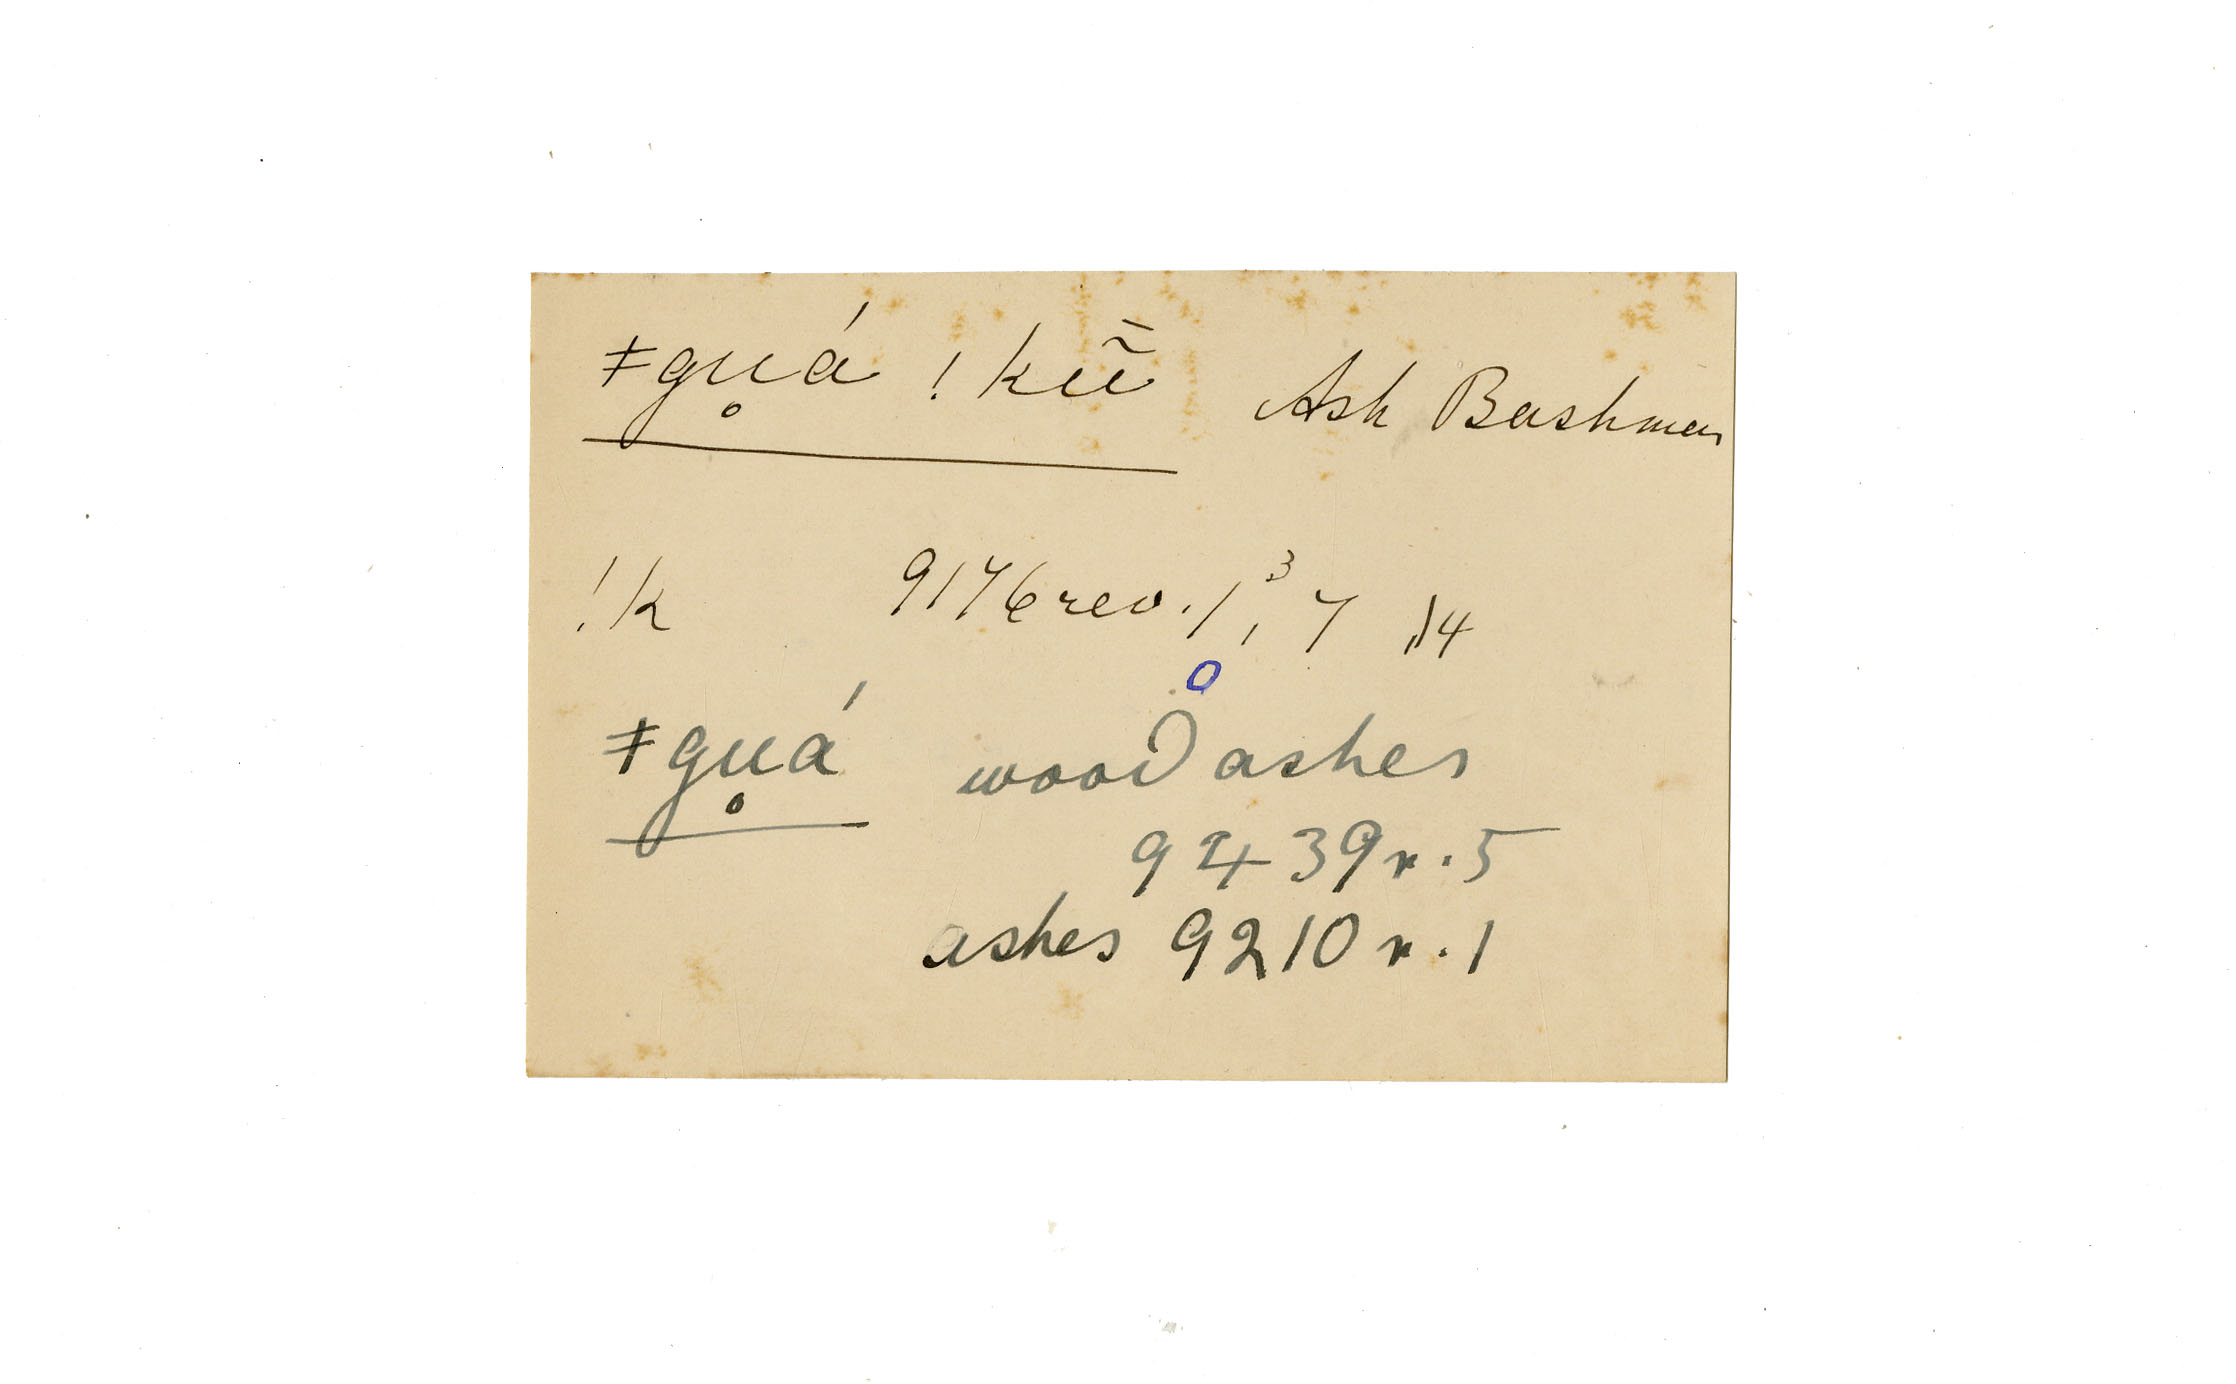 ǂgu̥á !kũ̄ Ash Bushmen
!k 9176 rev. 1, 3, 7, 14
ǂgu̥á wood ashes
9439 r. 5
ashes 9210 r. 1